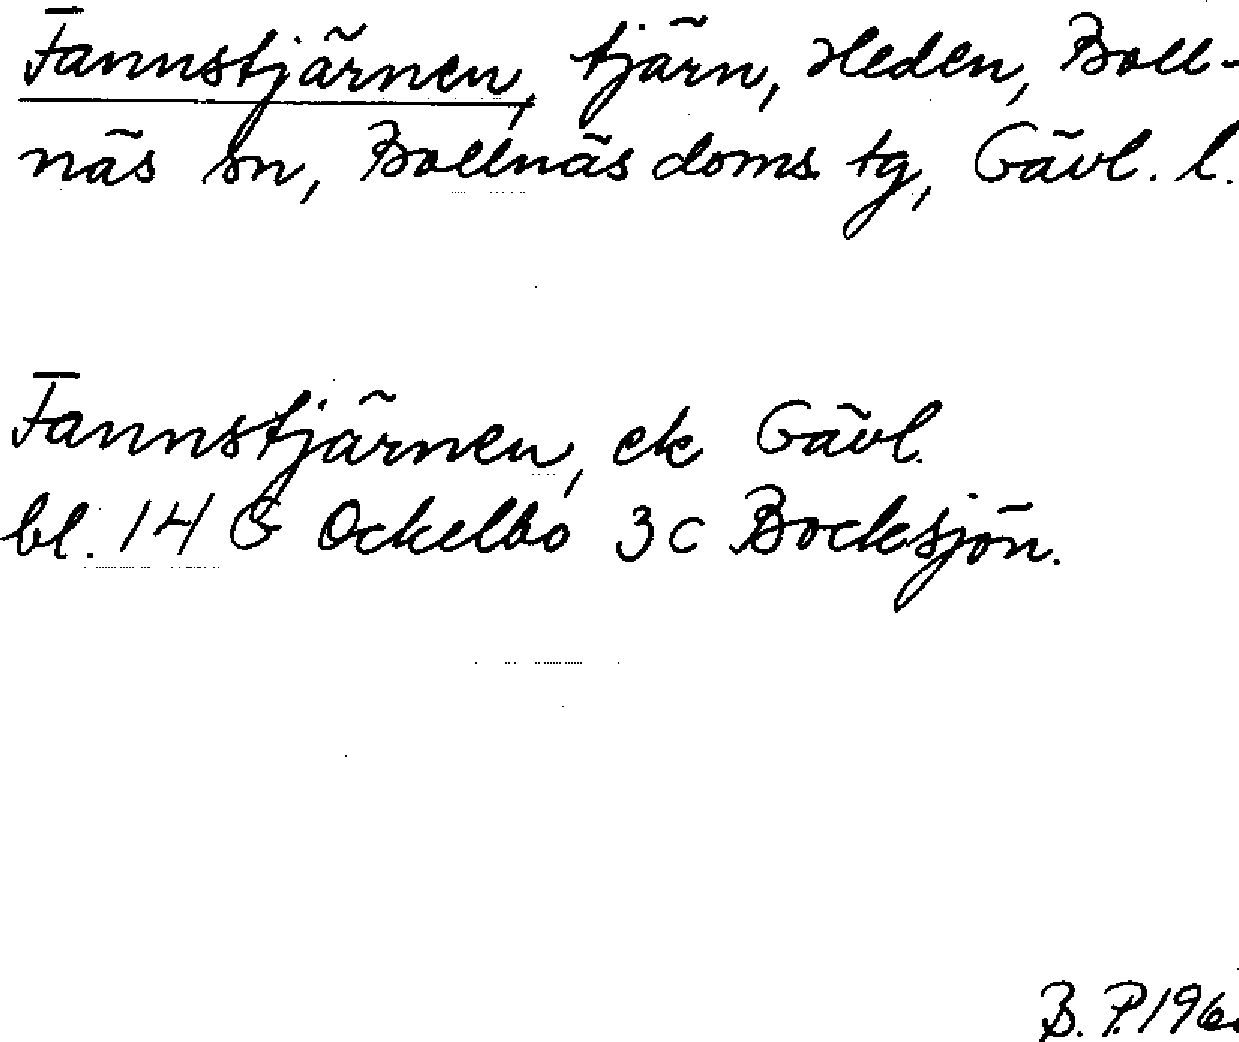 Fannstjärnen, tjärn, Heden, Boll-
näs sn, Bollnäs doms. tg, Gävl. l.
Fannstjärnen, ek Gävl.
bl. 14 G Ockelbo 3 c Bocksjön.
B. P. 196